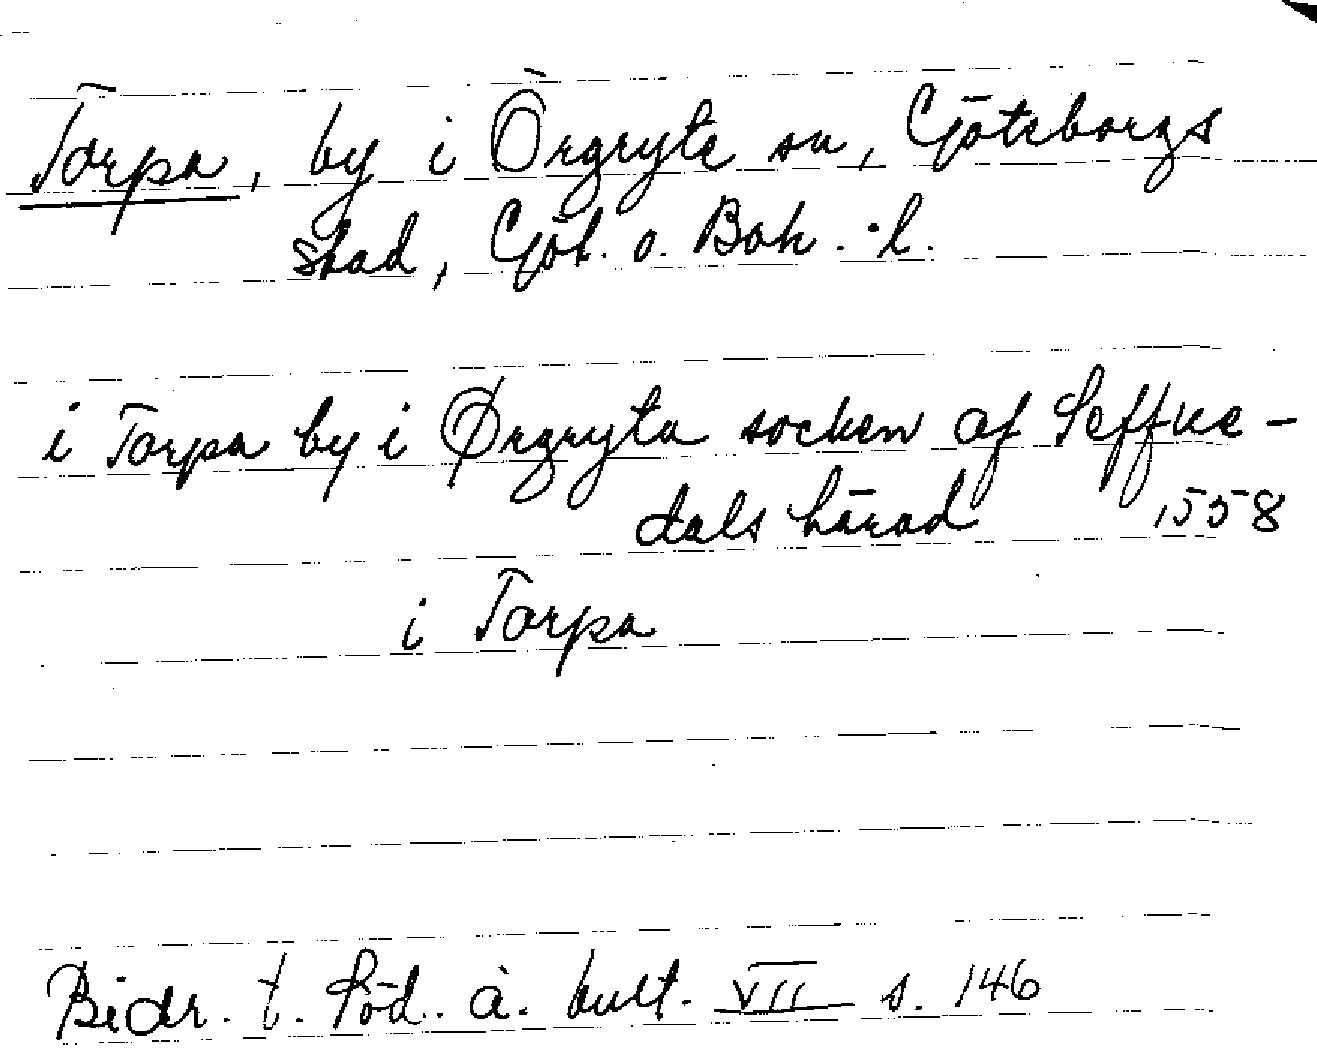 Torpa, by i Örgryte sn, Göteborgs
stad, Göt. o. Boh. l.
i Torpa by i Ørgryta socken af Seffue-
dals härad 1558
i Torpa
Bidr. t. Söd. ä. kult. VII s. 146